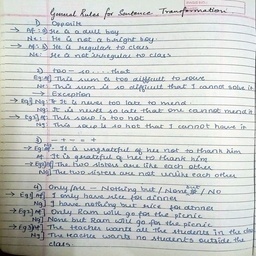 General Rules for Sentence Transformation
1) Opposite
→ Af: He is a dull boy
Ne: He is not a bright boy.
→ Af: It is regular to class
Ne: He is not irregular to class
2) too — so....that
Eg: Af This sum is too difficult to solve
Ne This sum is so difficult that I cannot solve it
→ Exception
→ Eg: Ng It is never too late to mend
Ng It is never so late that one cannot mend it
→ Eg: Af This soup is too hot
Ng This soup is so hot that I cannot have it
3) - + - = +
→ Eg: Af It is ungrateful of her not to thank him
Af It is grateful of her to thank him
→ Eg: Af The two sisters are like each other
Ng The two sisters are not unlike each other
4) Only/All — Nothing but / None but / No
→ Eg: Af I only have rice for dinner
Ng I have nothing but rice for dinner
→ Eg: Af Only Ram will go for the picnic
Ng None but Ram will go for the picnic
→ Eg: Af The teacher wants all the students in the class
Ng The teacher wants no students outside the
class.